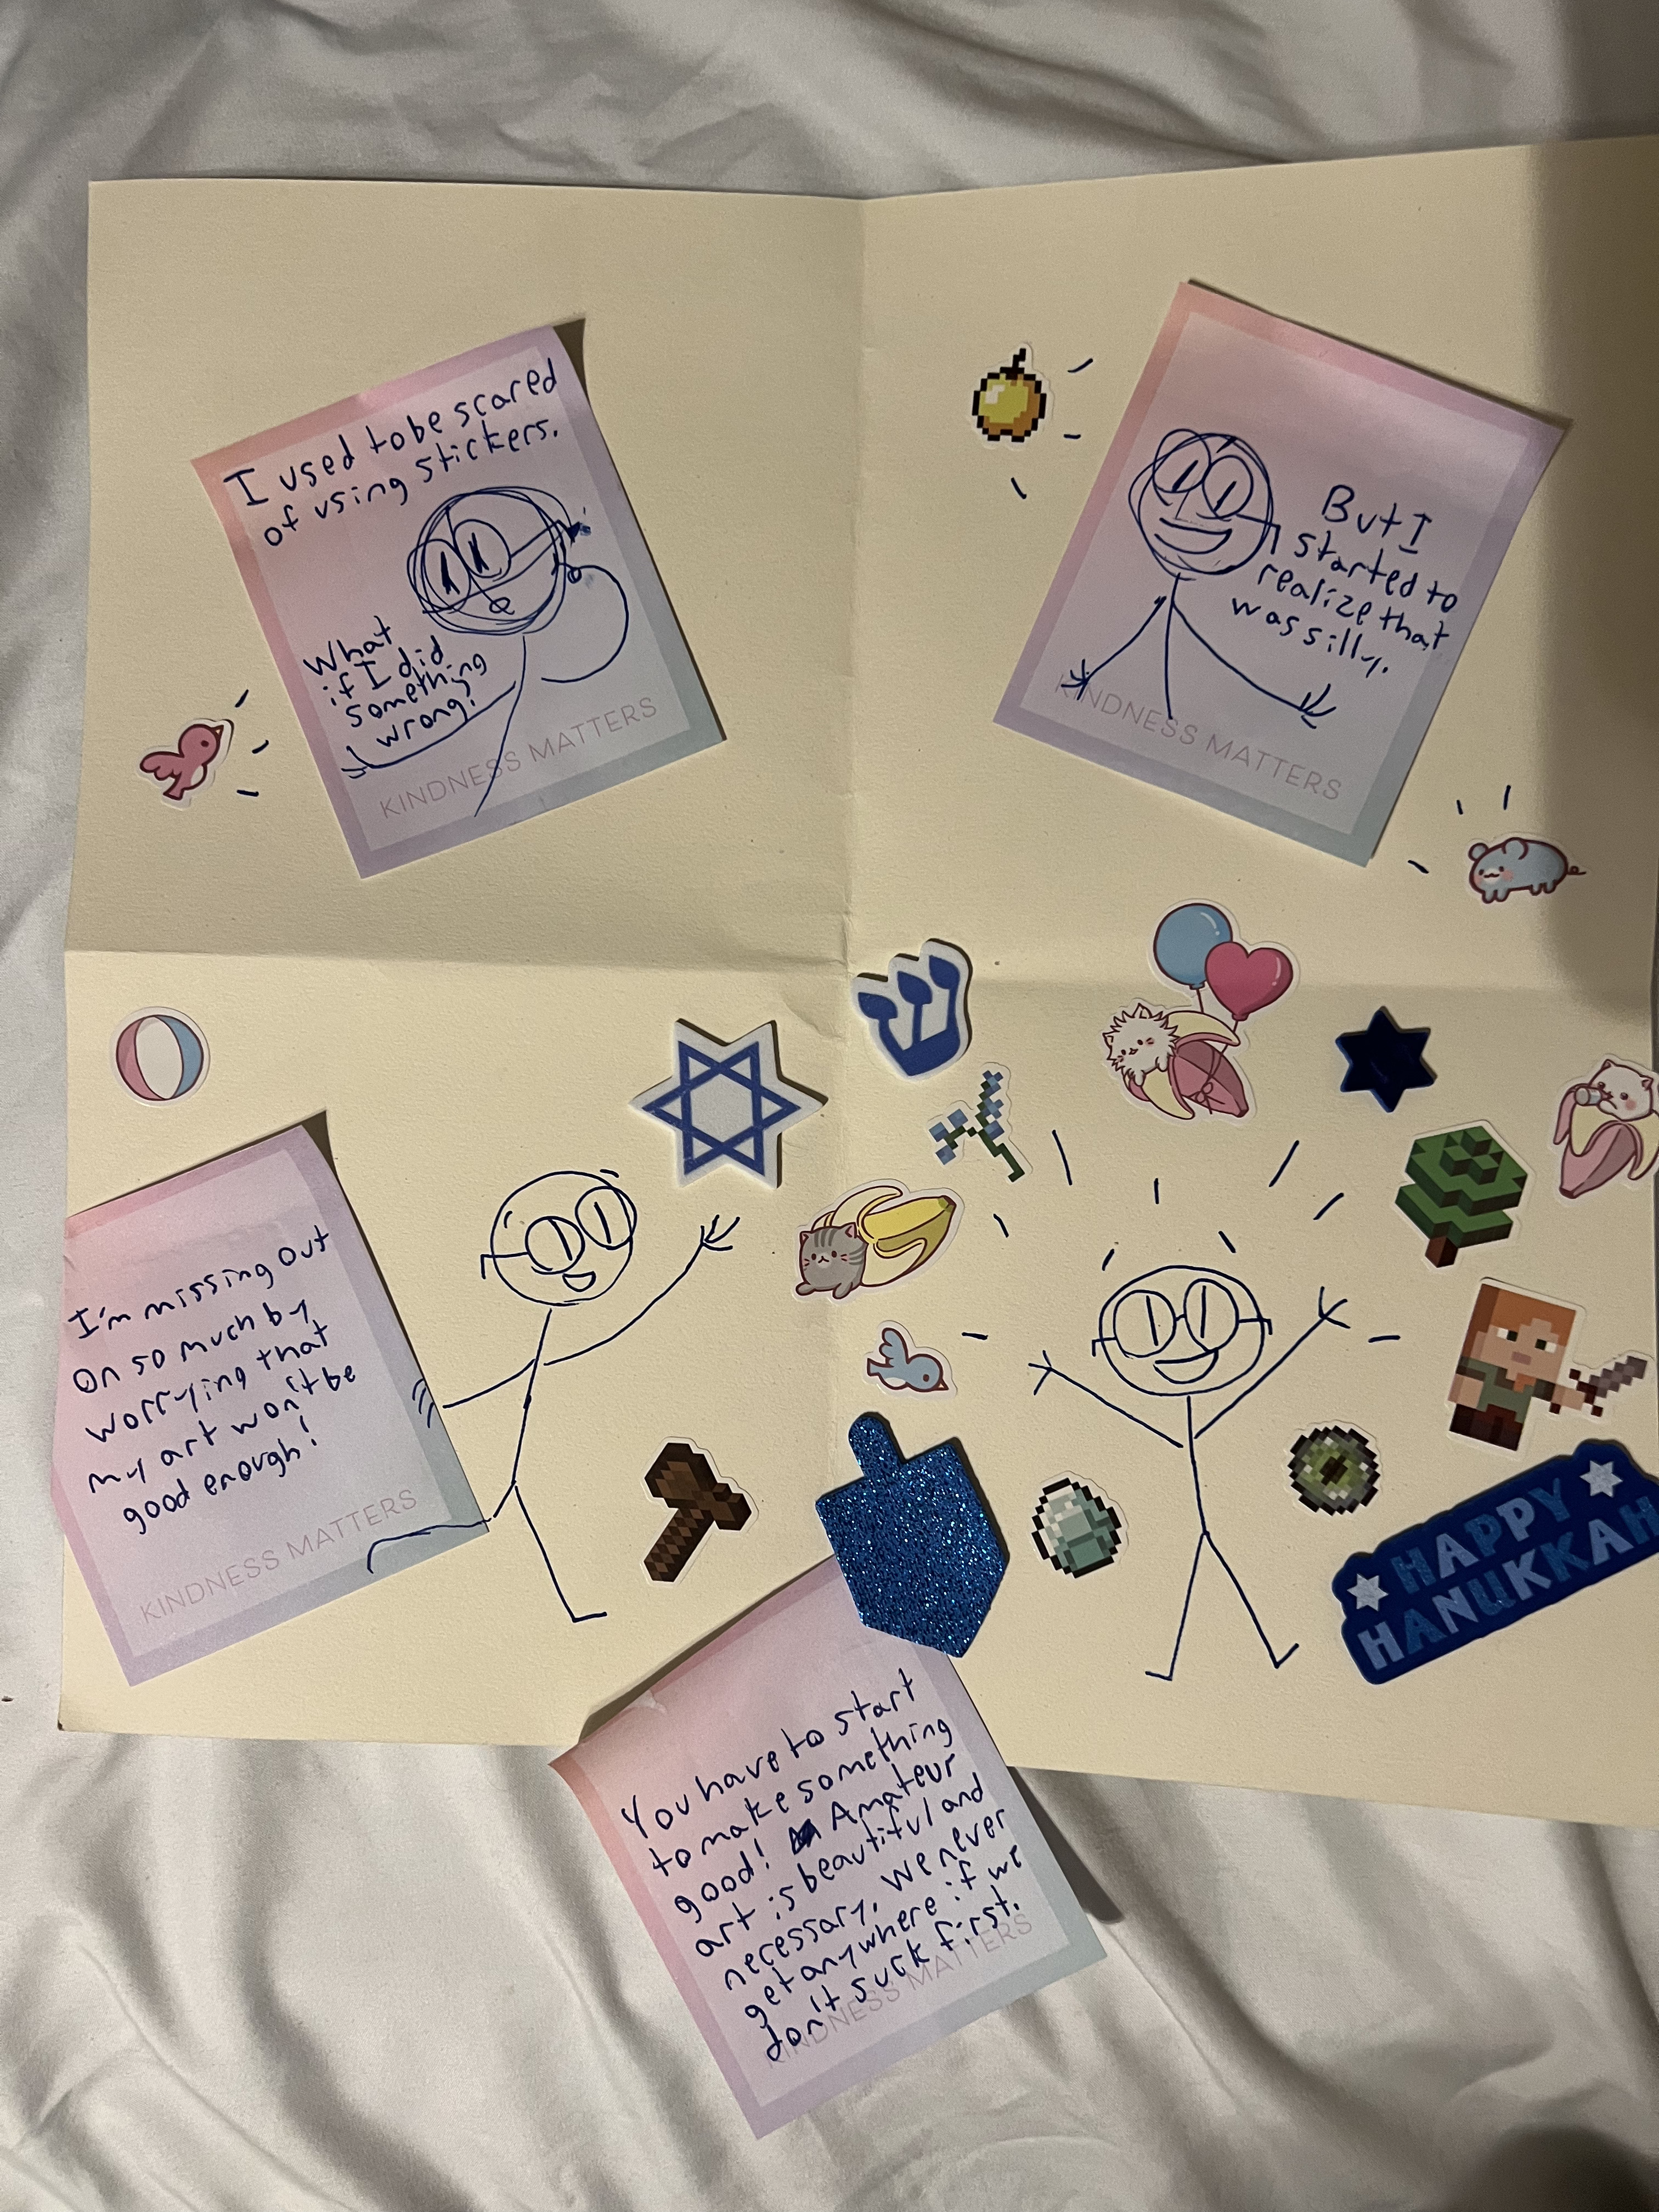 I used to be scared
of using stickers.
What
if I did
something
wrong?
KINDNESS MATTERS
But I
started to
realize that
was silly.
KINDNESS MATTERS
I'm missing out
on so much by
worrying that
my art won't be
good enough!
KINDNESS MATTERS
ש
HAPPY
HANUKKAH
You have to start
to make something
good! Amateur
art is beautiful and
necessary. We never
get anywhere if we
don't suck first.
KINDNESS MATTERS